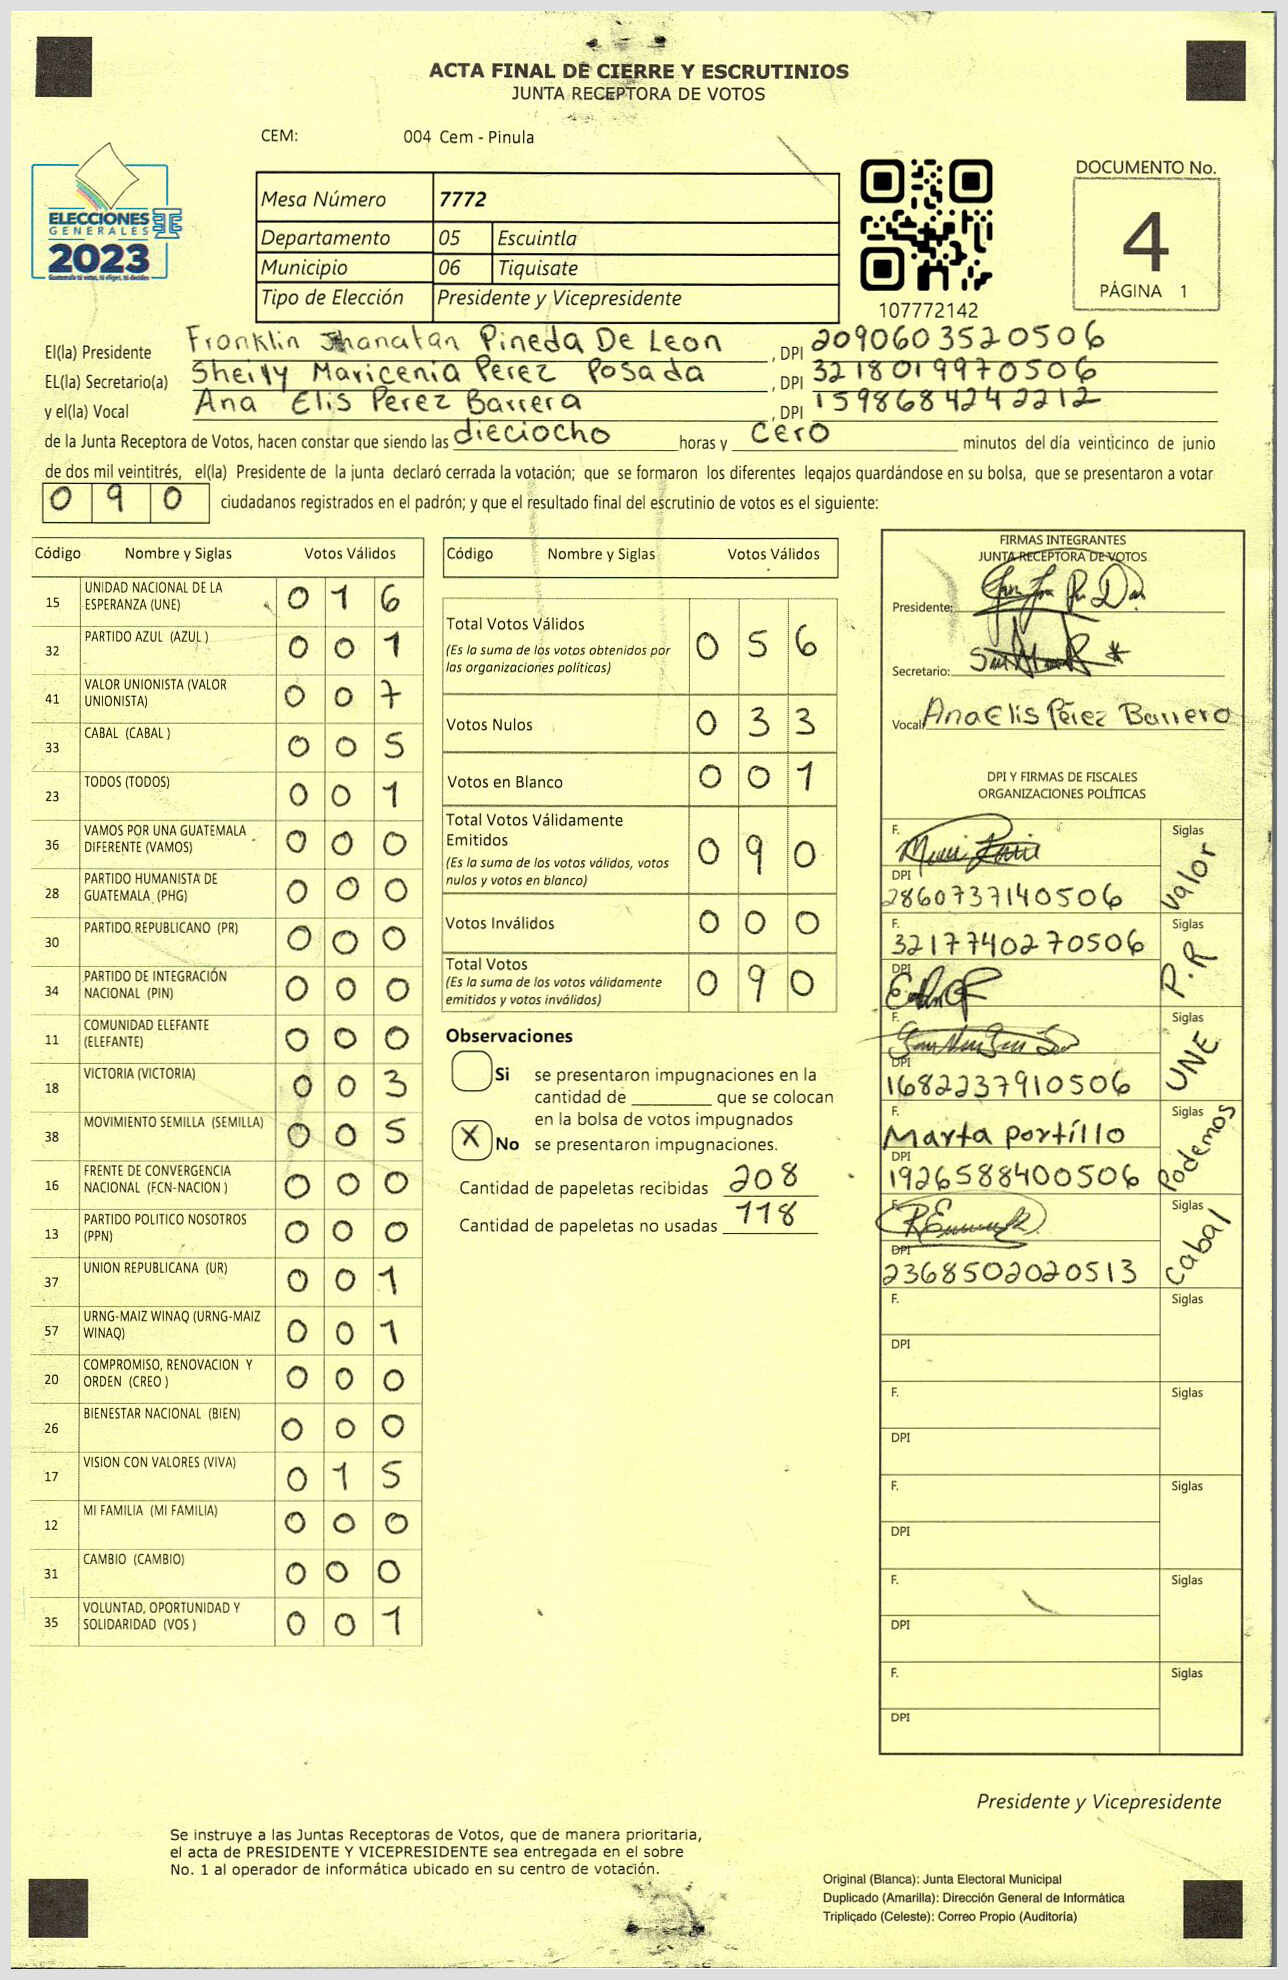 ACTA FINAL DE CIERRE Y ESCRUTINIOS
JUNTA RECEPTORA DE VOTOS
CEM: 004 Cem - Pinula
ELECCIONES
GENERALES
2023
Guatemala tú votas, tú eliges, tú decides
Mesa Número 7772
Departamento 05 Escuintla
Municipio 06 Tiquisate
Tipo de Elección Presidente y Vicepresidente
107772142
DOCUMENTO No.
4
PÁGINA 1
El(la) Presidente Franklin Jhanatan Pineda De Leon , DPI 2090603520506
EL(la) Secretario(a) Sheily Maricenia Perez Posada , DPI 3218019970506
y el(la) Vocal Ana Elis Perez Barrera , DPI 1598684242212
de la Junta Receptora de Votos, hacen constar que siendo las dieciocho horas y cero minutos del día veinticinco de junio
de dos mil veintitrés, el(la) Presidente de la junta declaró cerrada la votación; que se formaron los diferentes legajos guardándose en su bolsa, que se presentaron a votar
0 9 0 ciudadanos registrados en el padrón; y que el resultado final del escrutinio de votos es el siguiente:
Código Nombre y Siglas Votos Válidos
15 UNIDAD NACIONAL DE LA ESPERANZA (UNE) 0 1 6
32 PARTIDO AZUL (AZUL ) 0 0 1
41 VALOR UNIONISTA (VALOR UNIONISTA) 0 0 7
33 CABAL (CABAL ) 0 0 5
23 TODOS (TODOS) 0 0 1
36 VAMOS POR UNA GUATEMALA DIFERENTE (VAMOS) 0 0 0
28 PARTIDO HUMANISTA DE GUATEMALA (PHG) 0 0 0
30 PARTIDO REPUBLICANO (PR) 0 0 0
34 PARTIDO DE INTEGRACIÓN NACIONAL (PIN) 0 0 0
11 COMUNIDAD ELEFANTE (ELEFANTE) 0 0 0
18 VICTORIA (VICTORIA) 0 0 3
38 MOVIMIENTO SEMILLA (SEMILLA) 0 0 5
16 FRENTE DE CONVERGENCIA NACIONAL (FCN-NACION ) 0 0 0
13 PARTIDO POLITICO NOSOTROS (PPN) 0 0 0
37 UNION REPUBLICANA (UR) 0 0 1
57 URNG-MAIZ WINAQ (URNG-MAIZ WINAQ) 0 0 1
20 COMPROMISO, RENOVACION Y ORDEN (CREO ) 0 0 0
26 BIENESTAR NACIONAL (BIEN) 0 0 0
17 VISION CON VALORES (VIVA) 0 1 5
12 MI FAMILIA (MI FAMILIA) 0 0 0
31 CAMBIO (CAMBIO) 0 0 0
35 VOLUNTAD, OPORTUNIDAD Y SOLIDARIDAD (VOS ) 0 0 1
Código Nombre y Siglas Votos Válidos
Total Votos Válidos 0 5 6
(Es la suma de los votos obtenidos por
las organizaciones políticas)
Votos Nulos 0 3 3
Votos en Blanco 0 0 1
Total Votos Válidamente
Emitidos 0 9 0
(Es la suma de los votos válidos, votos
nulos y votos en blanco)
Votos Inválidos 0 0 0
Total Votos 0 9 0
(Es la suma de los votos válidamente
emitidos y votos inválidos)
Observaciones
Si se presentaron impugnaciones en la
cantidad de ________ que se colocan
en la bolsa de votos impugnados
X No se presentaron impugnaciones.
Cantidad de papeletas recibidas 208
Cantidad de papeletas no usadas 118
FIRMAS INTEGRANTES
JUNTA RECEPTORA DE VOTOS
Presidente:
Secretario:
Vocal: Ana Elis Pérez Barrera
DPI Y FIRMAS DE FISCALES
ORGANIZACIONES POLÍTICAS
F. Siglas
DPI Valor
2860737140506
F. Siglas
3217740270506 P.R
DPI
F. Siglas
DPI UNE
1682237910506
F. Siglas
Marta portillo Podemos
DPI
1926588400506
F. Siglas
DPI Cabal
2368502020513
F. Siglas
DPI
F. Siglas
DPI
F. Siglas
DPI
F. Siglas
DPI
F. Siglas
DPI
Presidente y Vicepresidente
Se instruye a las Juntas Receptoras de Votos, que de manera prioritaria,
el acta de PRESIDENTE Y VICEPRESIDENTE sea entregada en el sobre
No. 1 al operador de informática ubicado en su centro de votación.
Original (Blanca): Junta Electoral Municipal
Duplicado (Amarilla): Dirección General de Informática
Triplicado (Celeste): Correo Propio (Auditoría)